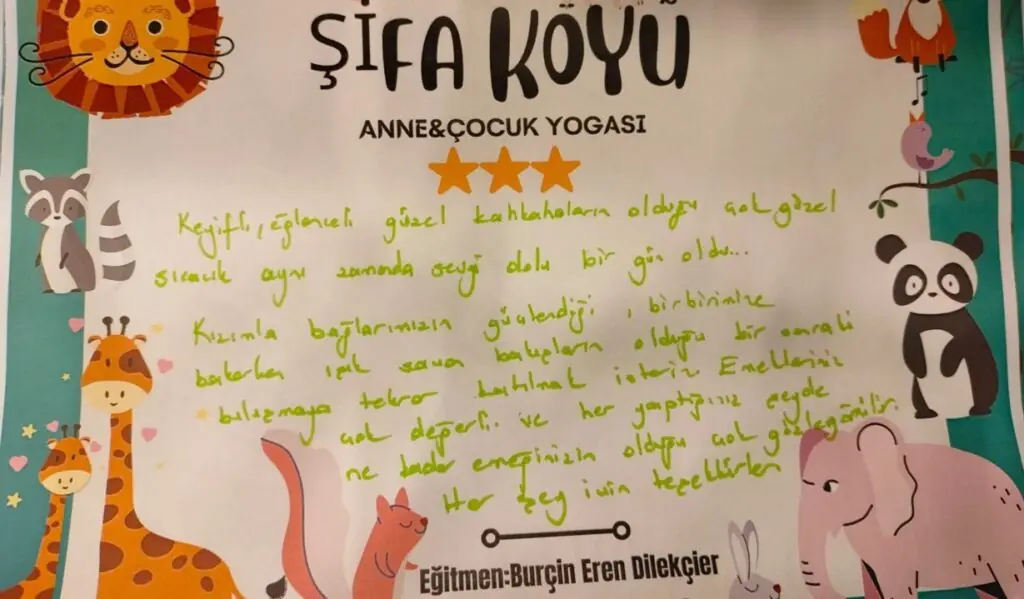 ŞİFA KÖYÜ
ANNE&ÇOCUK YOGASI
Keyifli, eğlenceli güzel kahkahaların olduğu çok güzel
sıcacık aynı zamanda sevgi dolu bir gün oldu...
Kızımla bağlarımızın güçlendiği, birbirimize
bakarken ışık saçan bakışların olduğu bir sonraki
buluşmaya tekrar katılmak isteriz Emekleriniz
çok değerli. ve her yaptığınız şeyde
ne kadar emeğinizin olduğu çok
Her şey için teşekkürler
Eğitmen:Burçin Eren Dilekçier